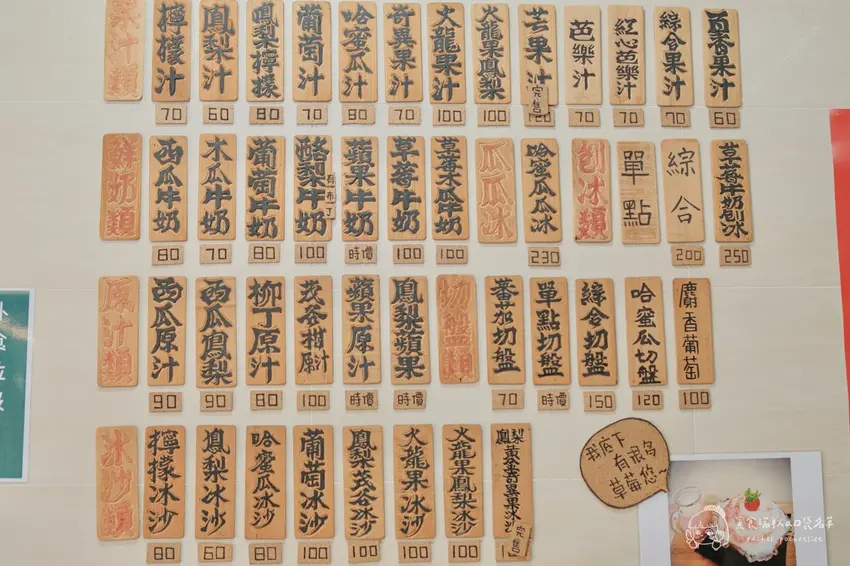 果汁類
檸檬汁 70
鳳梨汁 60
鳳梨檸檬 80
葡萄汁 70
哈蜜瓜汁 80
奇異果汁 70
火龍果汁 100
火龍果鳳梨 100
芒果汁 完售
芭樂汁 70
紅心芭樂汁 70
綜合果汁 70
百香果汁 60
鮮奶類
西瓜牛奶 80
木瓜牛奶 70
葡萄牛奶 80
酪梨牛奶 有布丁 100
蘋果牛奶 時價
草莓牛奶 100
草莓木瓜牛奶 100
瓜瓜冰
哈蜜瓜瓜冰 230
刨冰類
單點
綜合 200
草莓牛奶刨冰 250
原汁類
西瓜原汁 90
西瓜鳳梨 90
柳丁原汁 80
茂谷柑原汁 100
蘋果原汁 時價
鳳梨蘋果 時價
切盤類
蕃茄切盤 70
單點切盤 時價
綜合切盤 150
哈蜜瓜切盤 120
麝香葡萄 100
冰沙類
檸檬冰沙 80
鳳梨冰沙 60
哈蜜瓜冰沙 80
葡萄冰沙 100
鳳梨茂谷冰沙 100
火龍果冰沙 100
火龍果鳳梨冰沙 100
鳳梨黃金奇異果冰沙 完售
我底下
有很多
草莓悠~
rachel pocketlist